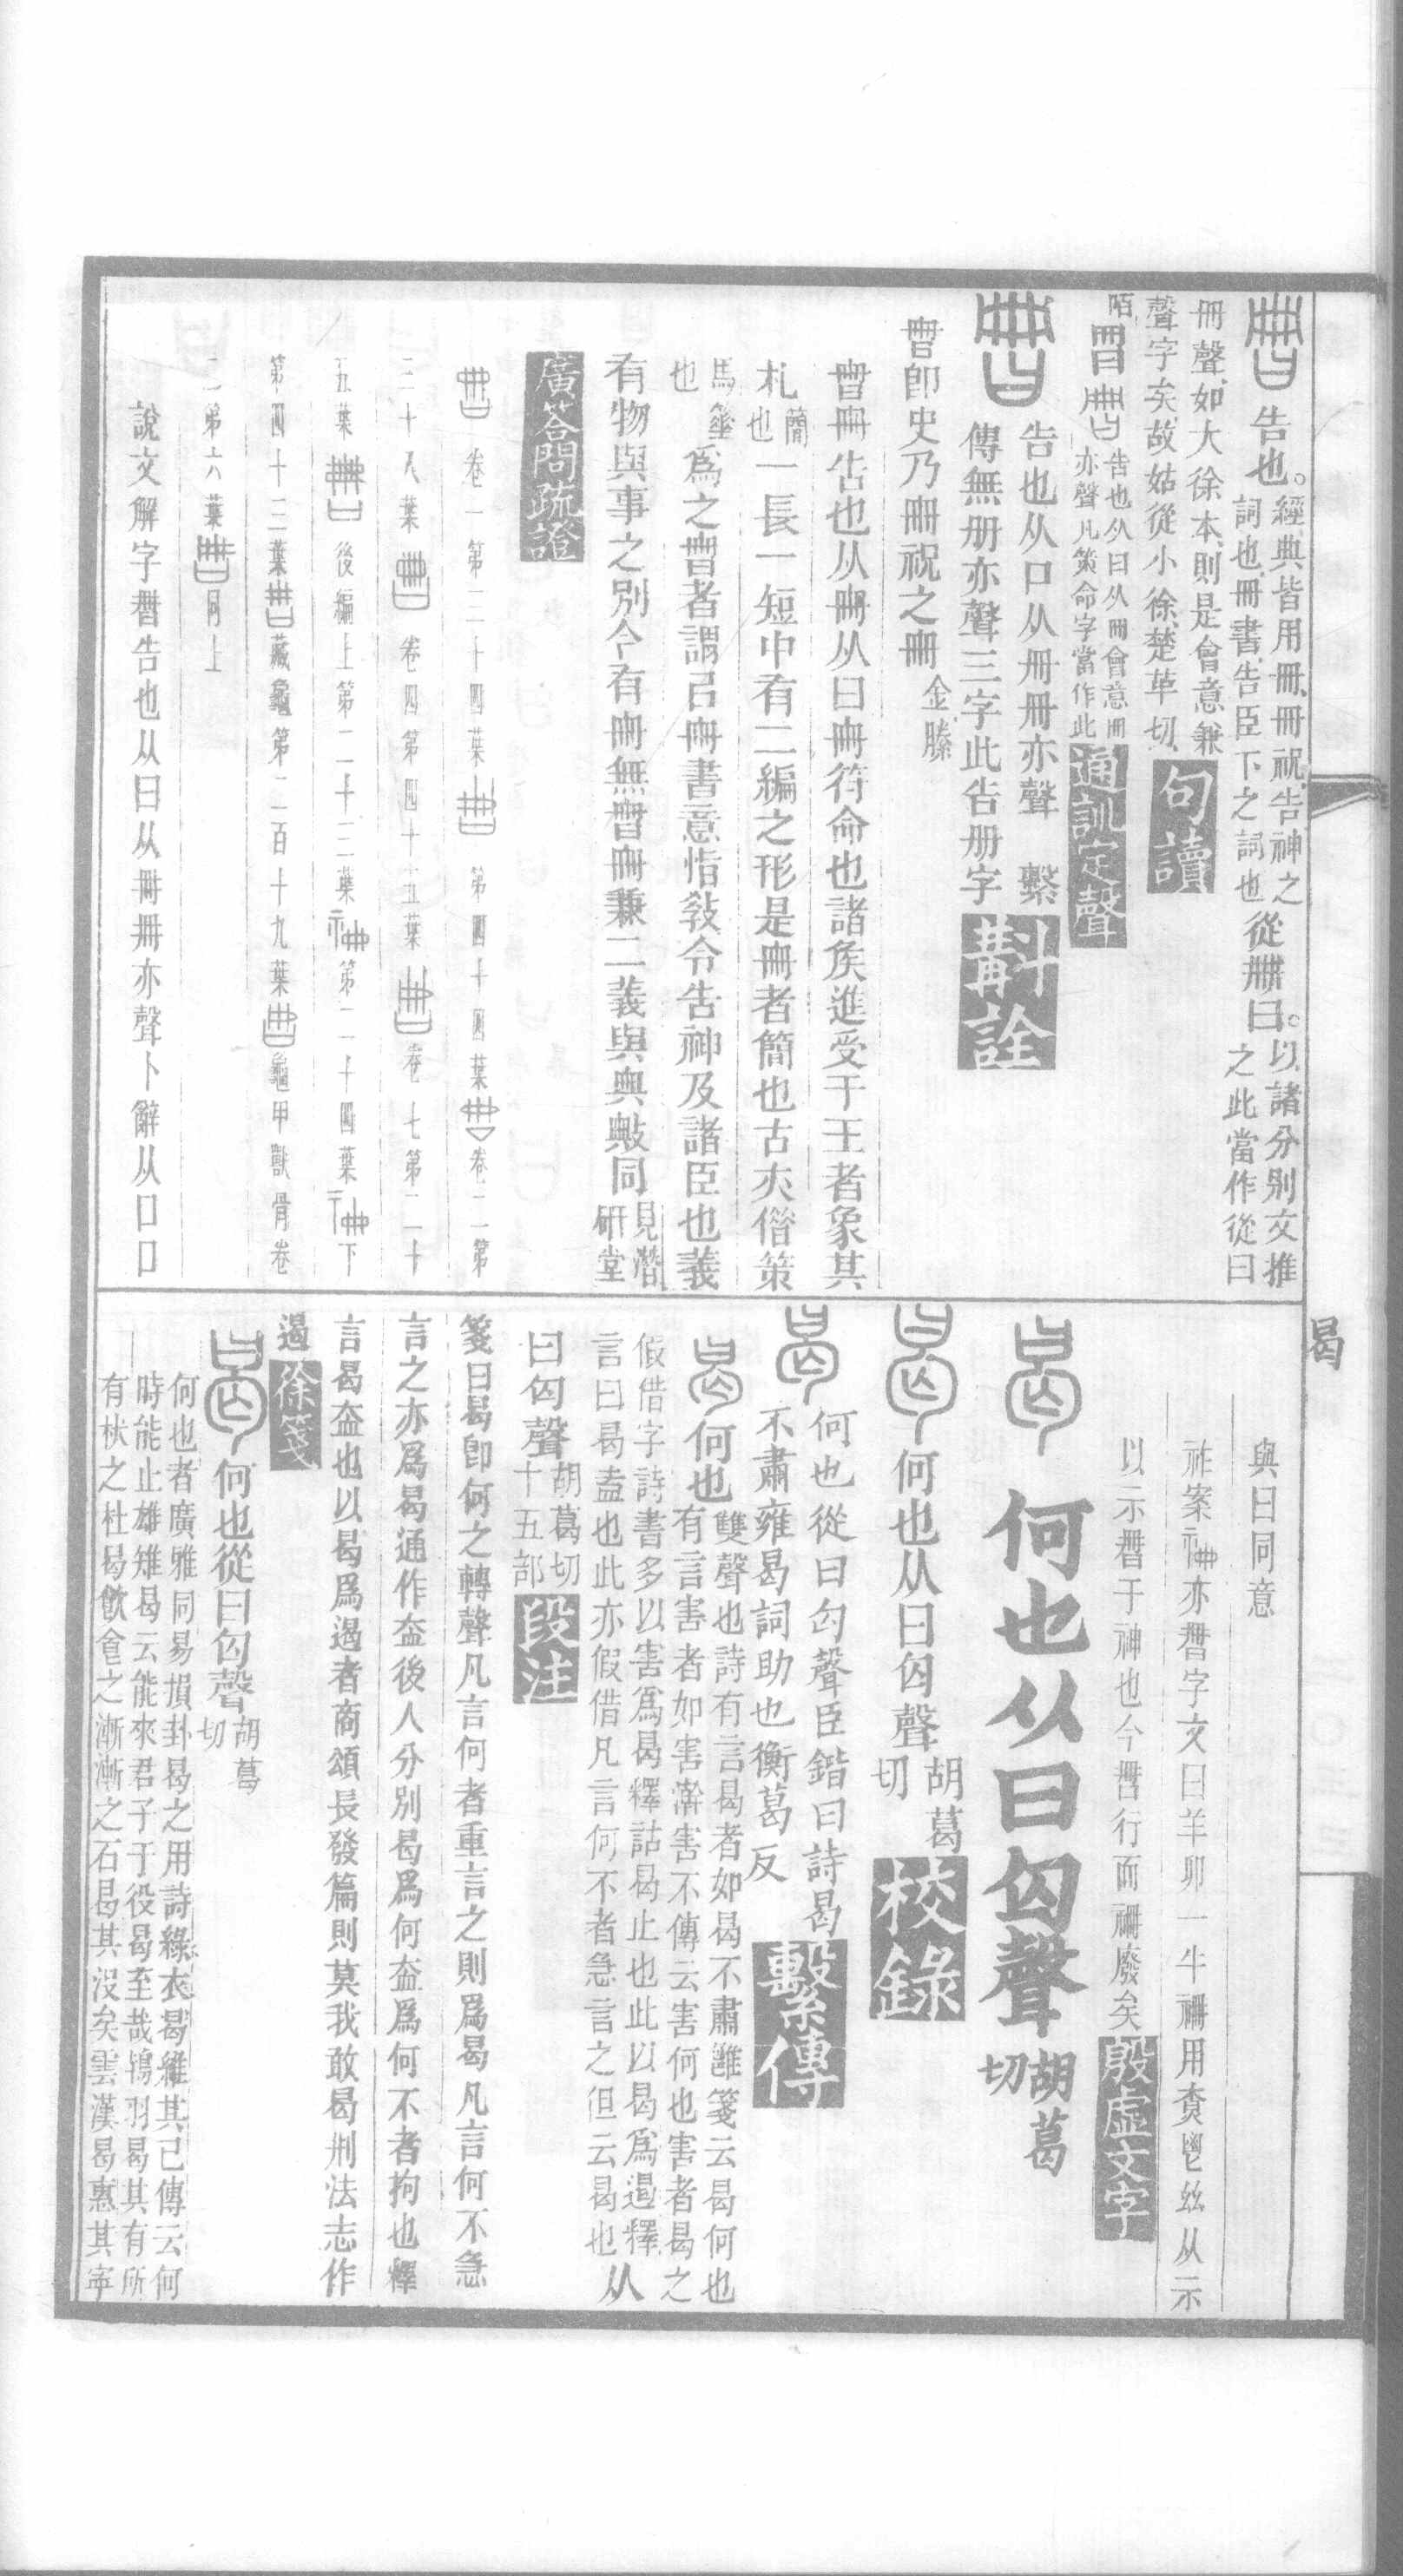 告也。經典皆用冊、冊祝、告神之
詞也、冊書、告臣下之詞也從冊曰。以諸分別文推
之此當作從曰
冊聲、如大徐本、則是會意兼
聲字矣、故姑從小徐、楚革切、句讀
告也从曰从冊會意冊
亦聲凡策命字當作此通訓定聲
告也从口从冊冊亦聲　繫
傳無冊亦聲三字此告冊字斠詮
曹即史乃冊祝之冊金縢
冊告也从冊从曰冊符命也諸侯進受于王者象其
札簡也一長一短中有二編之形是冊者簡也古夾僣策
馬箠也爲之者謂㠯冊書意恉敎令告神及諸臣也義
有物與事之別今有冊無冊兼二義與與敟同見潛
研堂
廣答問疏證
卷一第三十四葉　第四十四葉　卷二第
三十八葉　卷四第四十五葉　卷七第二十
五葉　後編上第二十三葉　第二十四葉　下
第四十三葉　藏龜第二百十九葉　龜甲獸骨卷
二第六葉　同上
說文解字朁告也从曰从冊冊亦聲卜辭从口口
曷
與曰同意
祚案亦字文曰羊卯一牛用賁鬯玆从示
以示于神也今行而廢矣殷虛文字
何也从曰匃聲胡葛切
何也从曰匃聲胡葛切校錄
何也從曰匃聲臣鍇曰詩曷
不肅雍曷詞助也衡葛反繫傳
何也雙聲也詩有言曷者如曷不肅雝箋云曷何也
有言害者如害澣害不傳云害何也害者曷之
假借字詩書多以害爲曷釋詁曷止也此以曷爲遏釋
言曰曷盍也此亦假借凡言何不者急言之但云曷也从
曰匃聲胡葛切
十五部段注
箋曰曷卽何之轉聲凡言何者重言之則爲曷凡言何不急
言之亦爲曷通作盇後人分別曷爲何盇爲何不者拘也釋
言曷盇也以曷爲遏者商頌長發篇則莫我敢曷刑法志作
遏徐箋
何也從曰匃聲胡葛切
何也者廣雅同易損卦曷之用詩綠衣曷維其已傳云何
時能止雄雉曷云能來君子于役曷至哉鴇羽曷其有所
有杕之杜曷飮食之漸漸之石曷其沒矣雲漢曷惠其寍